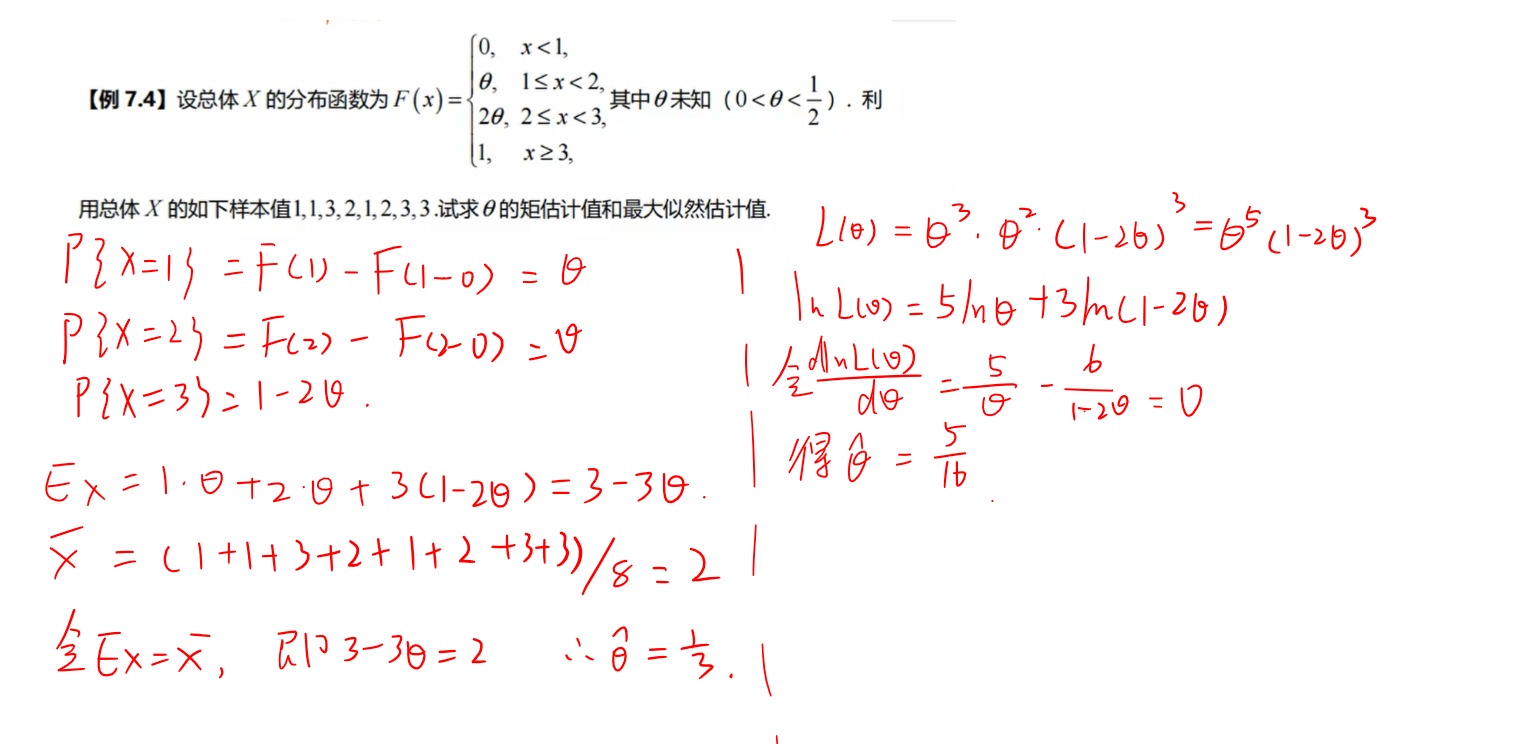 【例 7.4】设总体 X 的分布函数为 F(x) = { 0, x<1, θ, 1≤x<2, 2θ, 2≤x<3, 1, x≥3, 其中θ未知（0<θ<1/2）. 利
用总体 X 的如下样本值1,1,3,2,1,2,3,3.试求θ的矩估计值和最大似然估计值.
P{X=1} = F(1) - F(1-0) = θ
P{X=2} = F(2) - F(2-0) = θ
P{X=3} = 1-2θ.
EX = 1·θ+2·θ+3(1-2θ) = 3-3θ.
X̄ = (1+1+3+2+1+2+3+3)/8 = 2
令 EX = X̄, 即 3-3θ = 2 ∴ θ̂ = 1/3.
L(θ) = θ³·θ²·(1-2θ)³ = θ⁵(1-2θ)³
ln L(θ) = 5lnθ+3ln(1-2θ)
令 dlnL(θ)/dθ = 5/θ - 6/(1-2θ) = 0
得 θ̂ = 5/16.